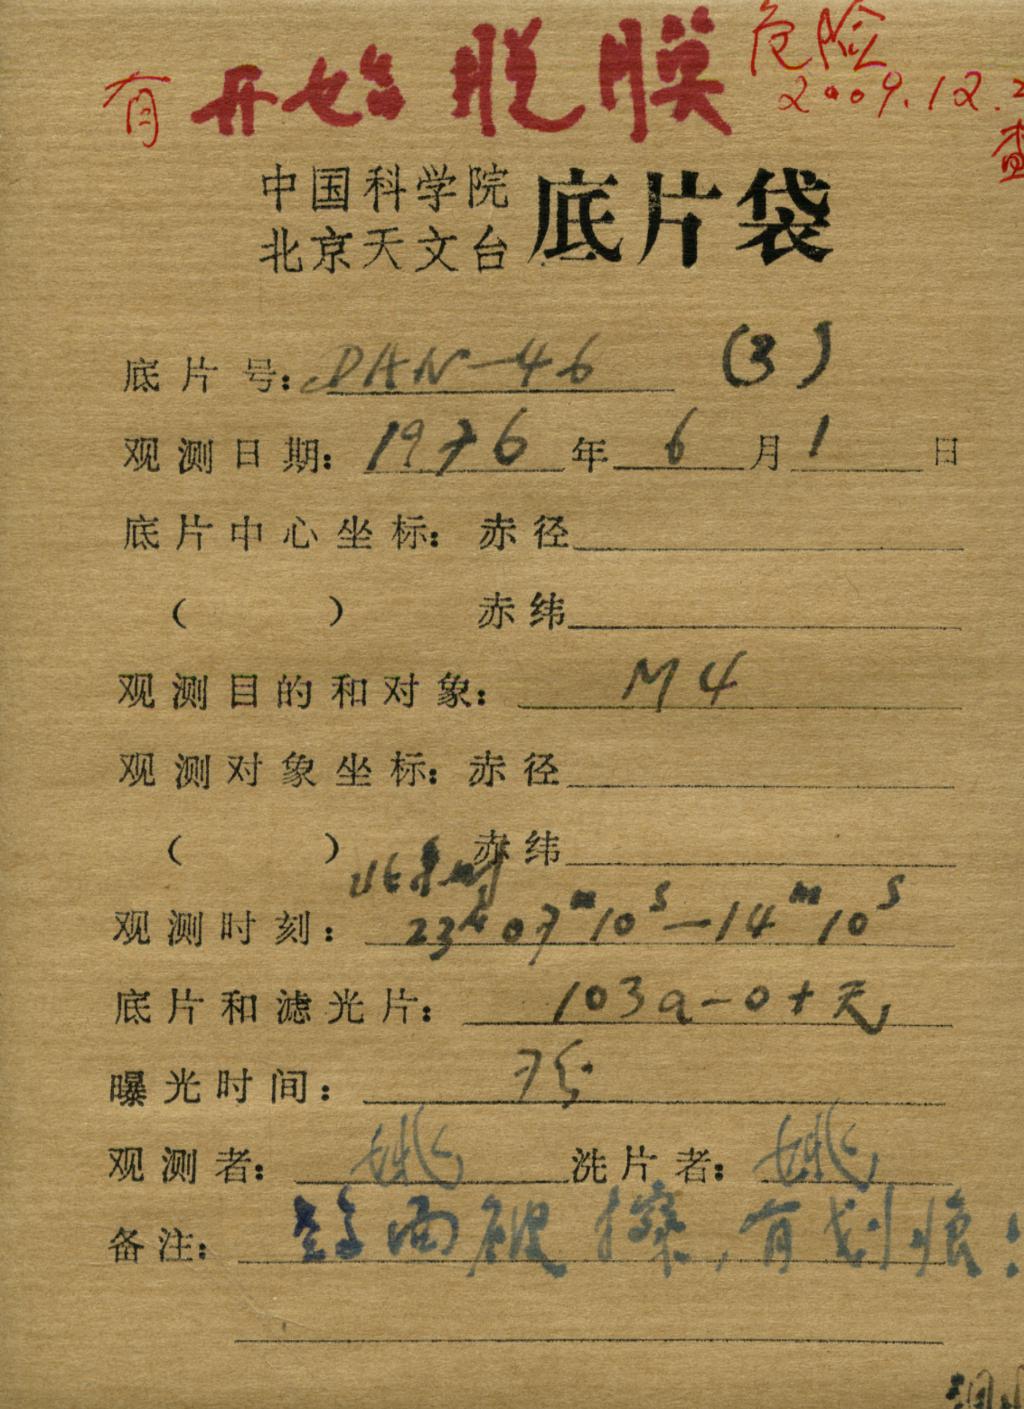 有开始脱膜危险
2009.12.2
查
中国科学院
北京天文台 底片袋
底片号: DAN-46 (3)
观测日期: 1976年6月1日
底片中心坐标: 赤径
( ) 赤纬
观测目的和对象: M4
观测对象坐标: 赤径
( ) 赤纬
北京时
观测时刻: 23h07m10s-14m10s
底片和滤光片: 103a-0+无
曝光时间: 7分
观测者: 姚 洗片者: 姚
备注: 药面被擦,有划痕!